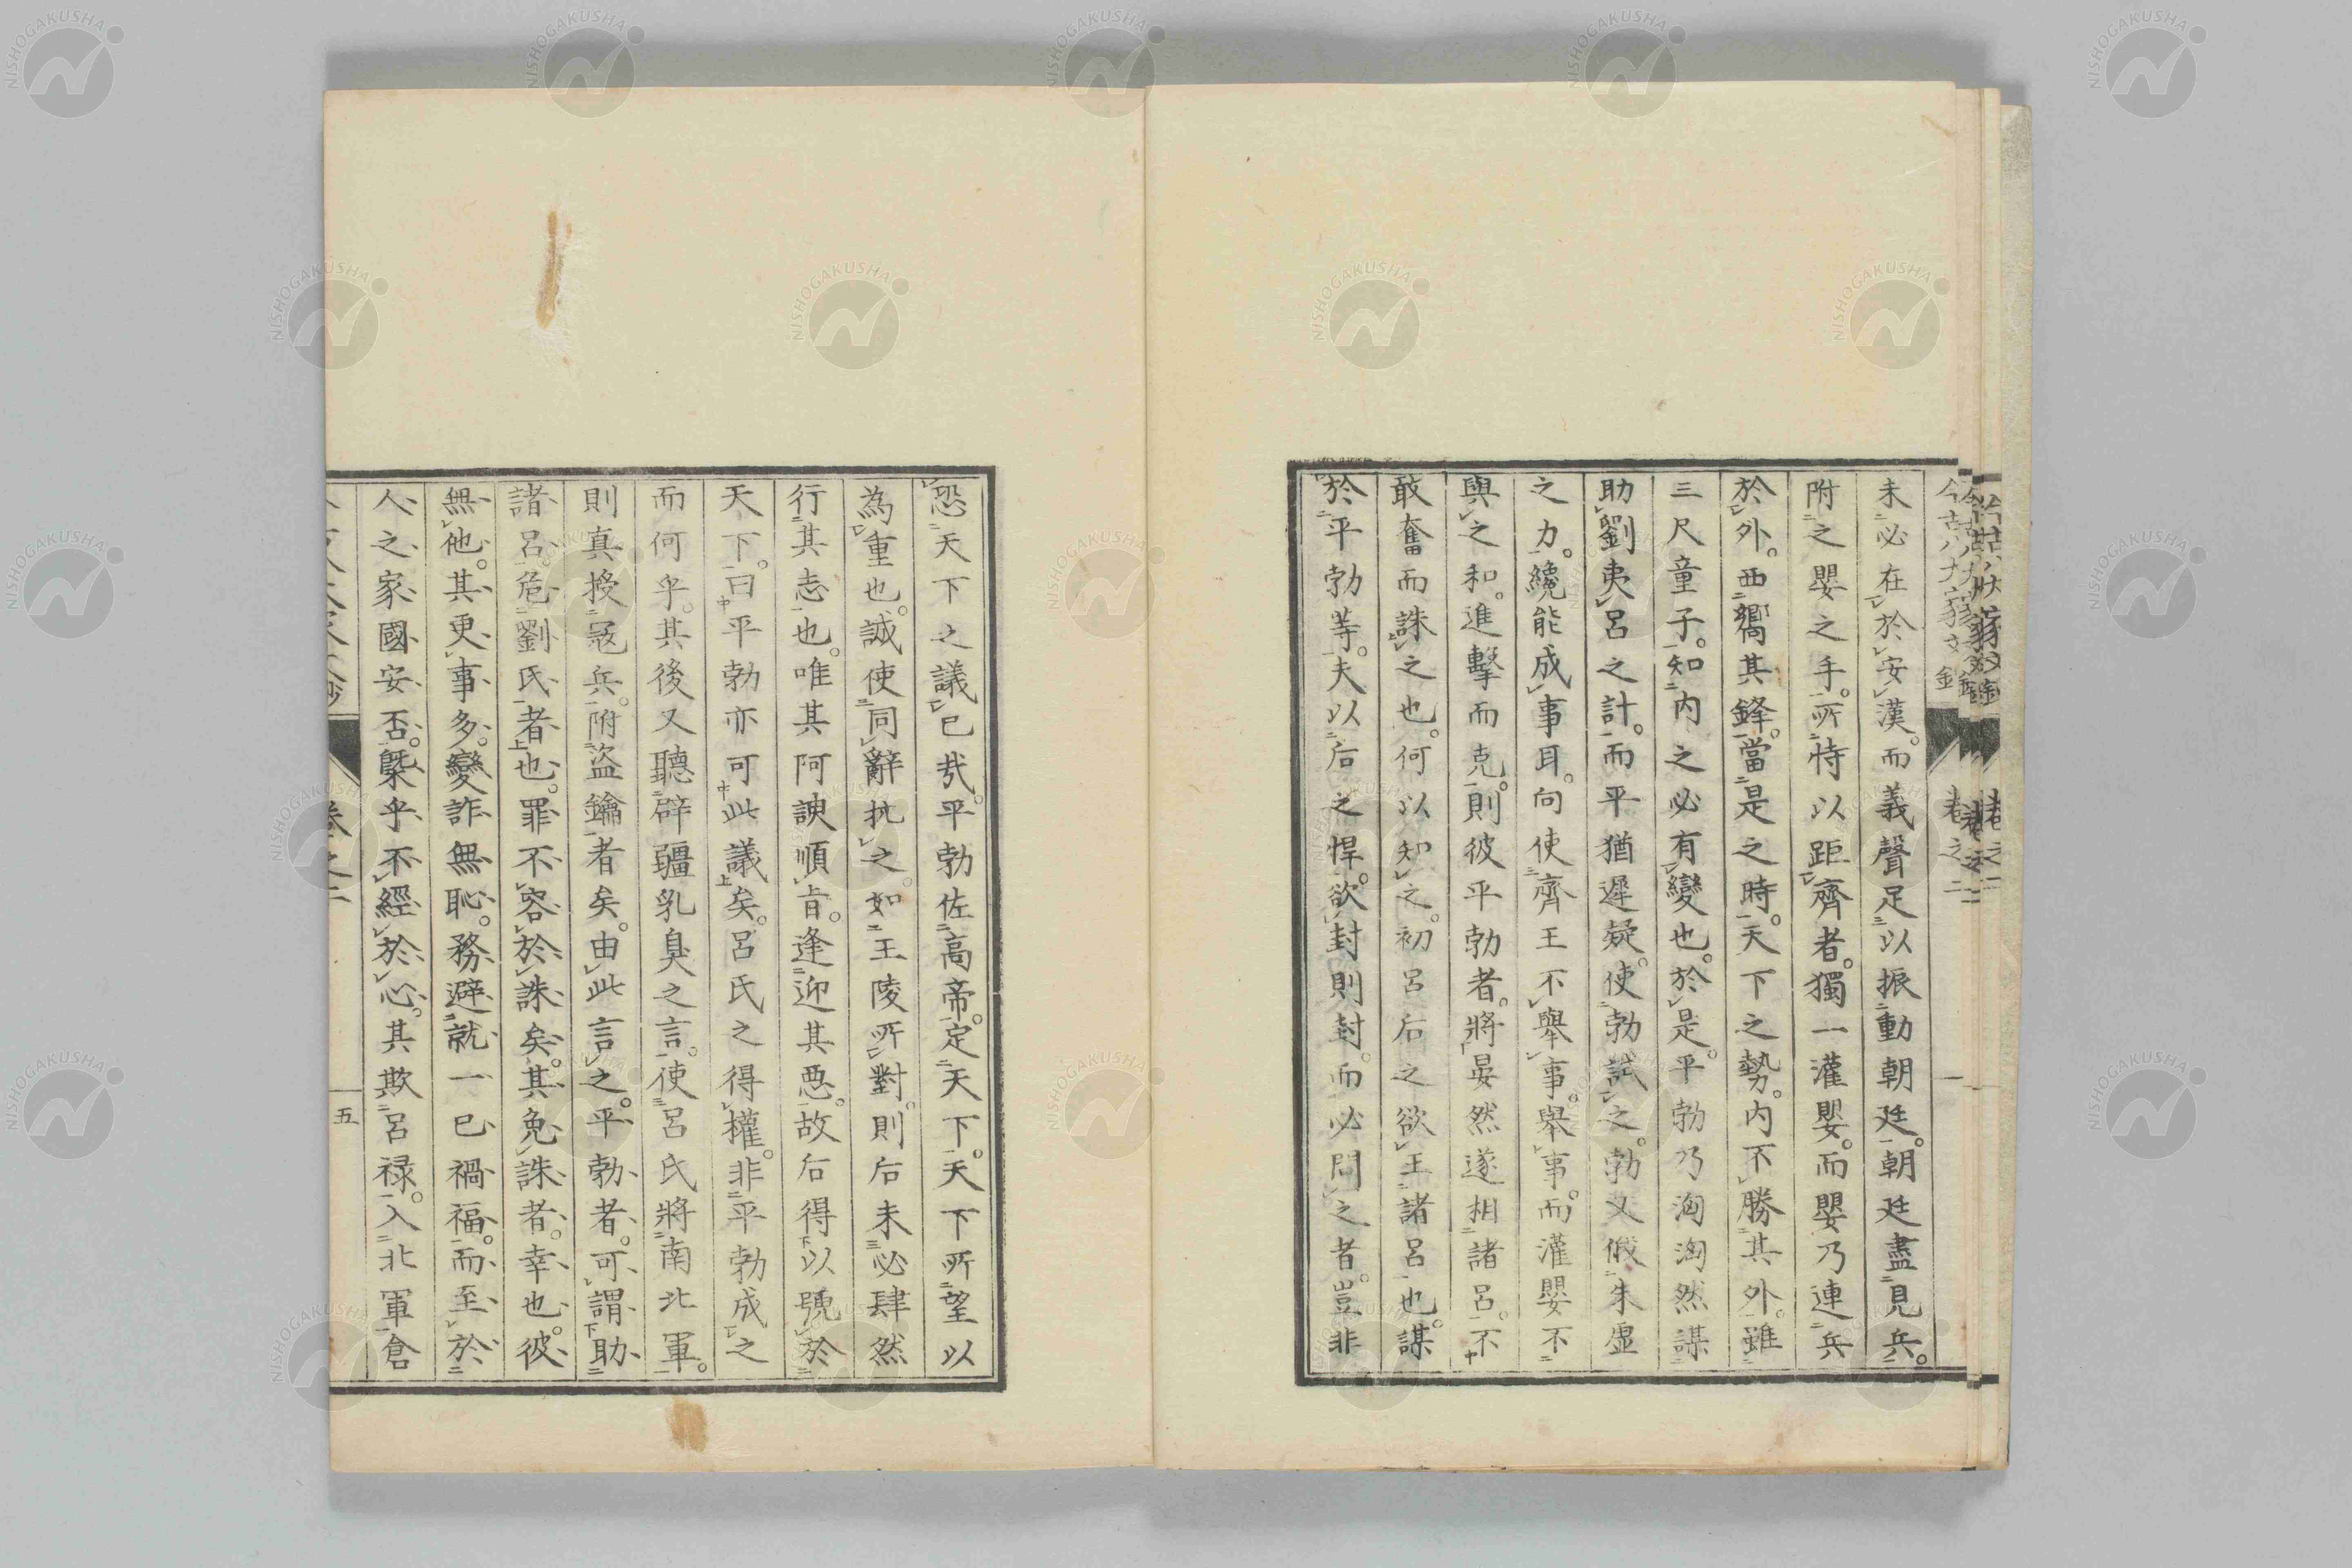 未必在於安漢。而義聲足以振動朝廷。朝廷盡見兵。
附之嬰之手。所恃以距齊者。獨一灌嬰。而嬰乃連兵
於外。西嚮其鋒。當是之時。天下之勢。内不勝其外。雖
三尺童子。知内之必有變也。於是。平勃乃洶洶然謀
助劉夷呂之計。而平猶遲疑。使勃試之。勃又俄朱虛
之力。纔能成事耳。向使齊王不舉事。舉事。而灌嬰不
與之和。進擊而克。則彼平勃者。將晏然遂相諸呂。不
敢奮而誅之也。何以知之。初呂后之欲王諸呂也。謀
於平勃等。夫以后之悍。欲封則封。而必問之者。豈非
恐天下之議已哉。平勃佐高帝。定天下。天下所望以
為重也。誠使同辭抗之。如王陵所對。則后未必肆然
行其志也。唯其阿諛順旨。逢迎其惡。故后得以號於
天下。曰平勃亦可此議矣。呂氏之得權。非平勃成之
而何乎。其後又聽辟疆乳臭之言。使呂氏將南北軍。
則真授寇兵。附盜鑰者矣。由此言之。平勃者。可謂助
諸呂危劉氏者也。罪不容於誅矣。其免誅者。幸也。彼
無他。其更事多。變詐無恥。務避就一已禍福。而至於
人之家國安否。槩乎不經於心。其欺呂禄。入北軍。倉
卷之二
五
卷之二
NISHOGAKUSHA